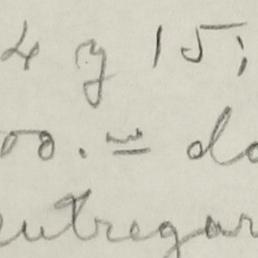 4 y 15;
00.= do
entregar